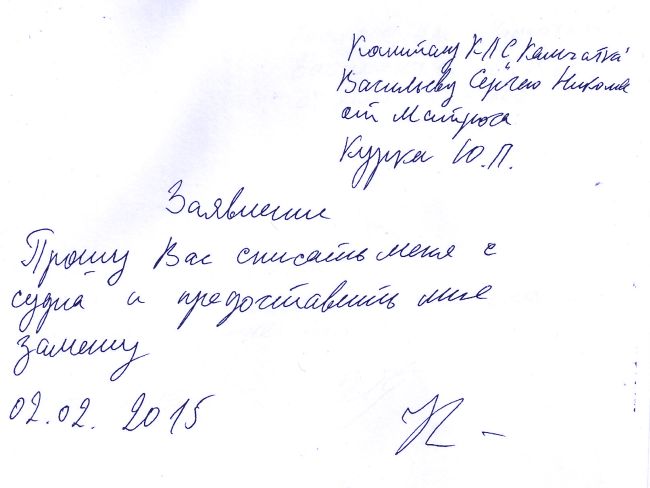 Капитану КЛС "Камчатка"
Васильеву Сергею Никола
от Матроса
Курка Ю.П.
Заявление
Прошу Вас списать меня с
судна и предоставить мне
замену
02.02. 2015